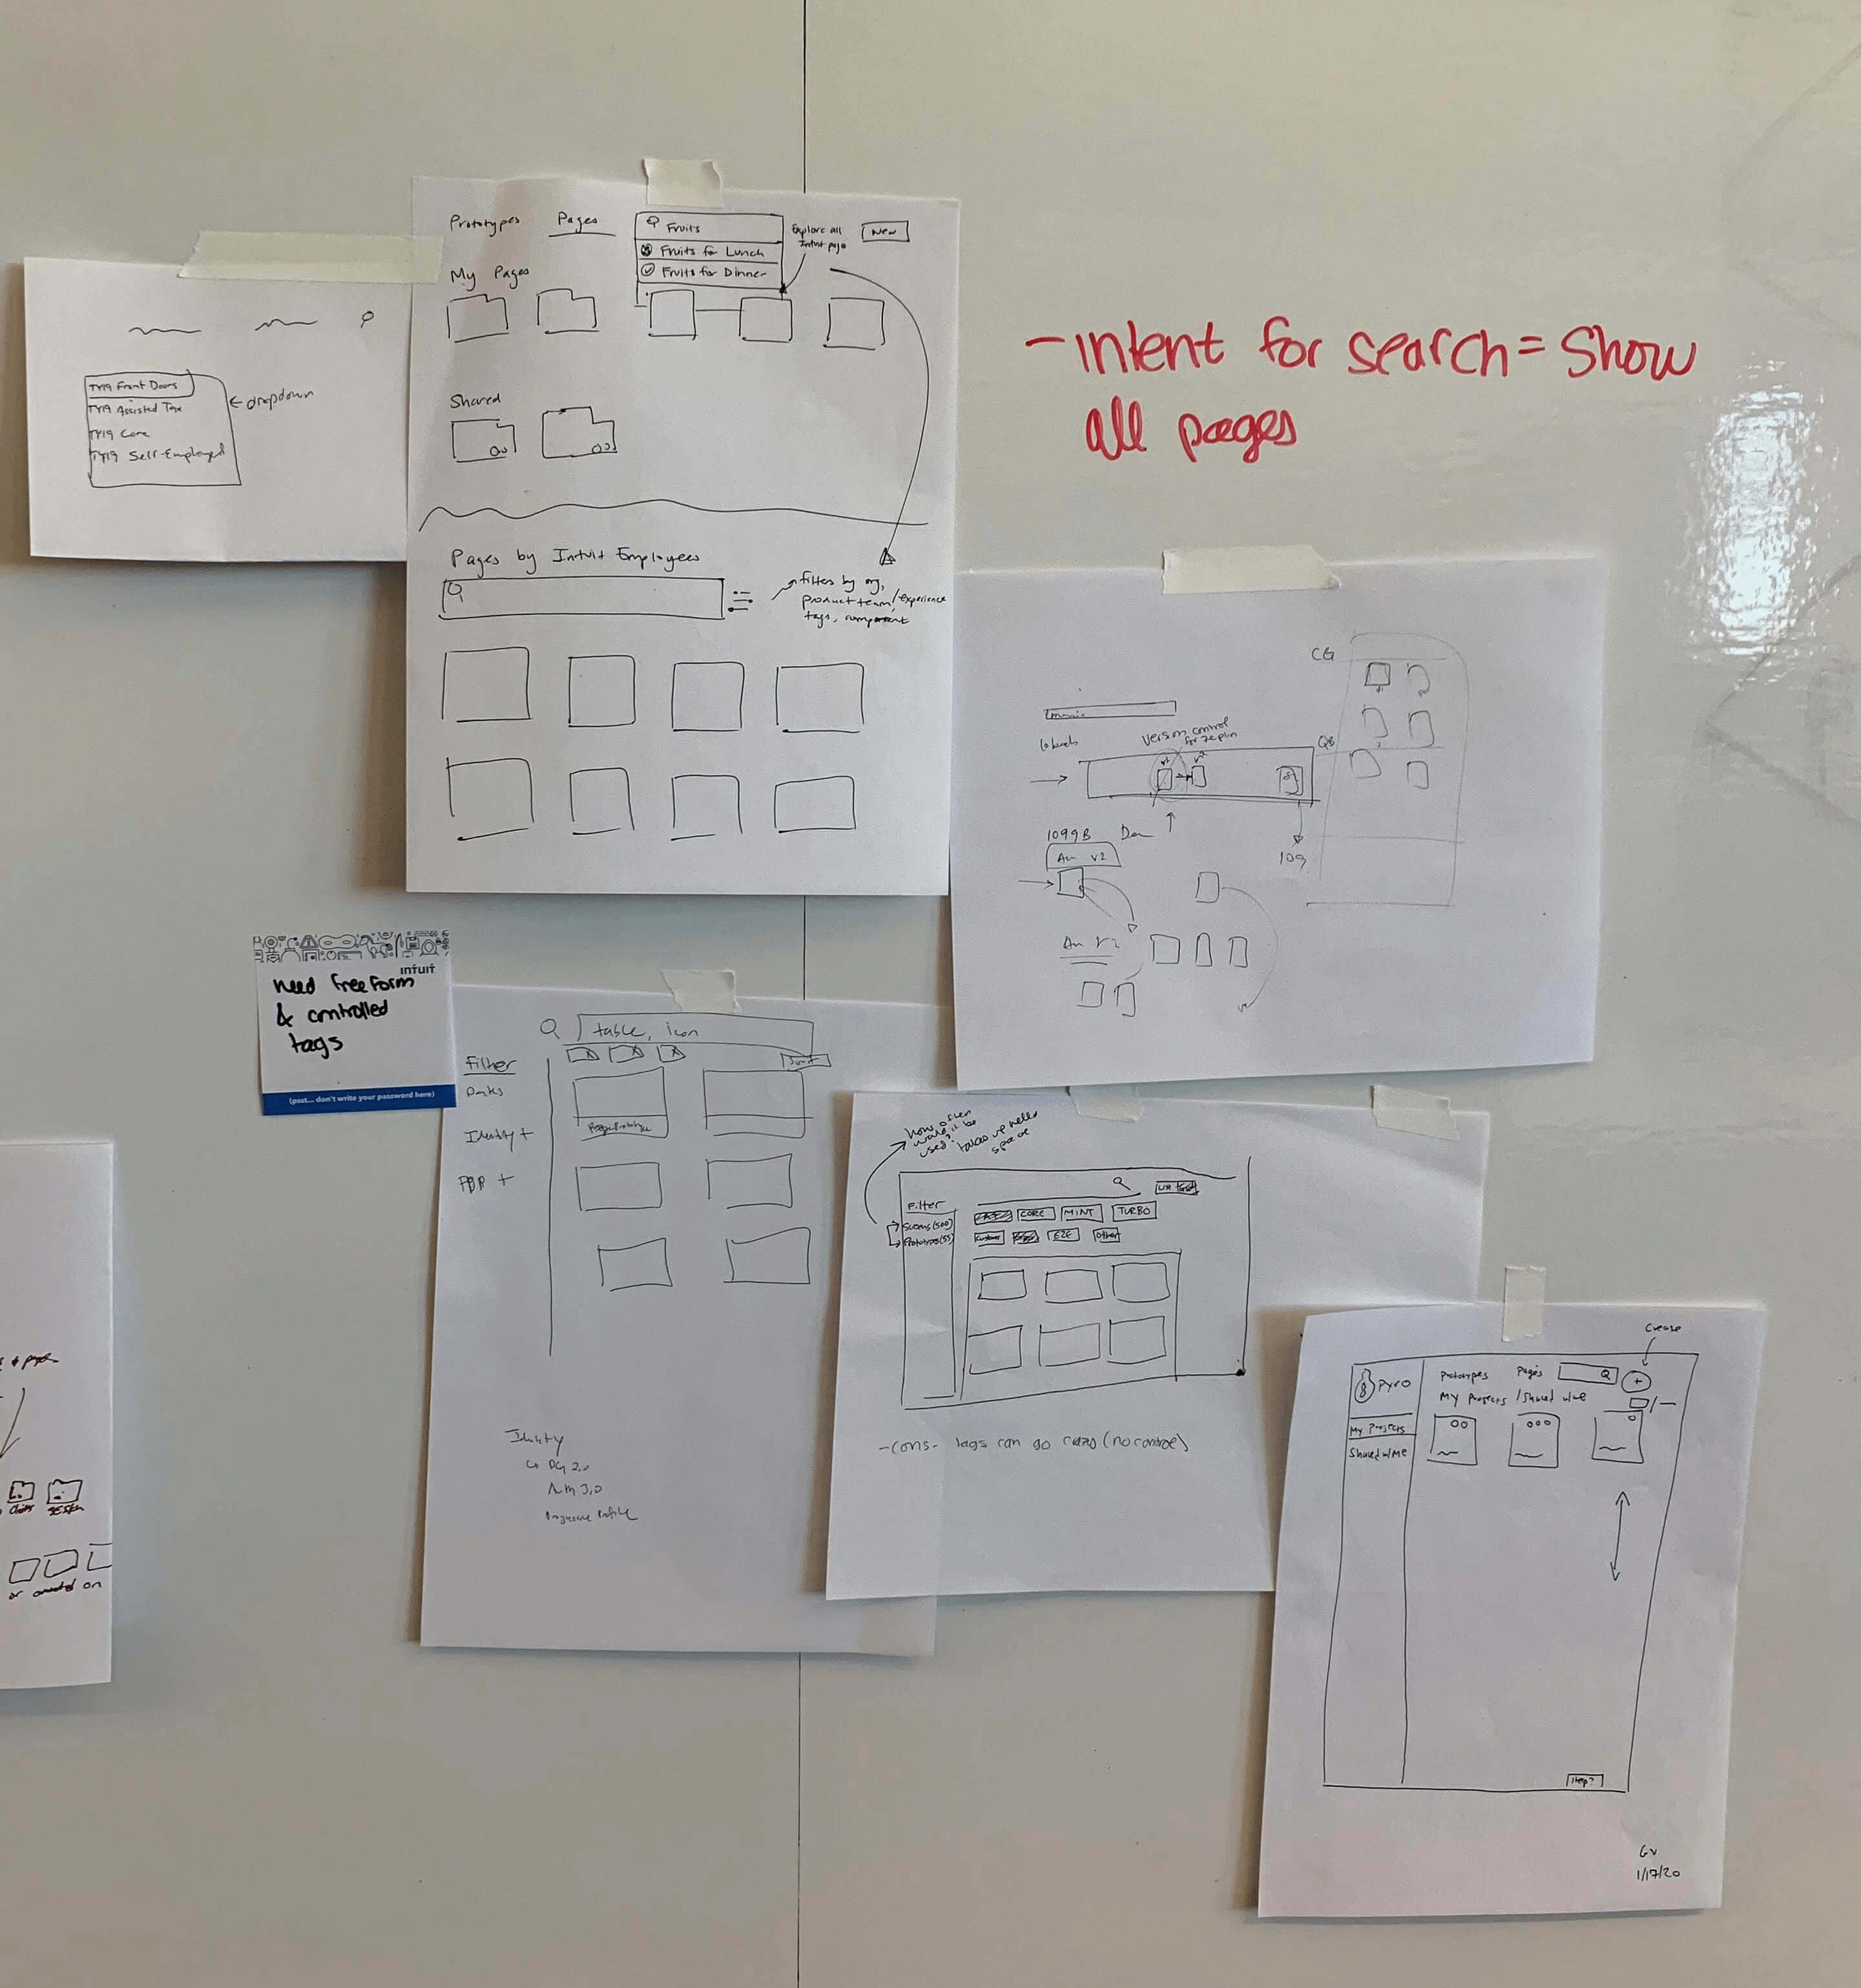 - intent for search = Show
all pages
TY19 Front Doors
TY19 Assisted Tax
TY19 Core
TY19 Self-Employed
← dropdown
Prototypes
Pages
Fruits
Fruits for Lunch
Fruits for Dinner
Explore all
Intuit page
New
My Pages
Shared
Pages by Intuit Employees
filters by org,
product team/experience
tags, component
CG
QB
version control
for zeplin
1099B
V2
109
V2
intuit
need freeform
& controlled
tags
(psst... don't write your password here)
table, icon
Filter
Identity +
Identity
Auth 3.0
Progressive Profile
how often
would it be
used?
takes up needed
space
Filter
Screens (500)
Prototypes (55)
CORE
MINT
TURBO
E2E
Other
- cons - tags can go crazy (no control)
Create
Pyro
Prototypes
Pages
My Projects / Shared w/me
My Projects
Shared w/Me
Help?
GV
1/17/20
or created on